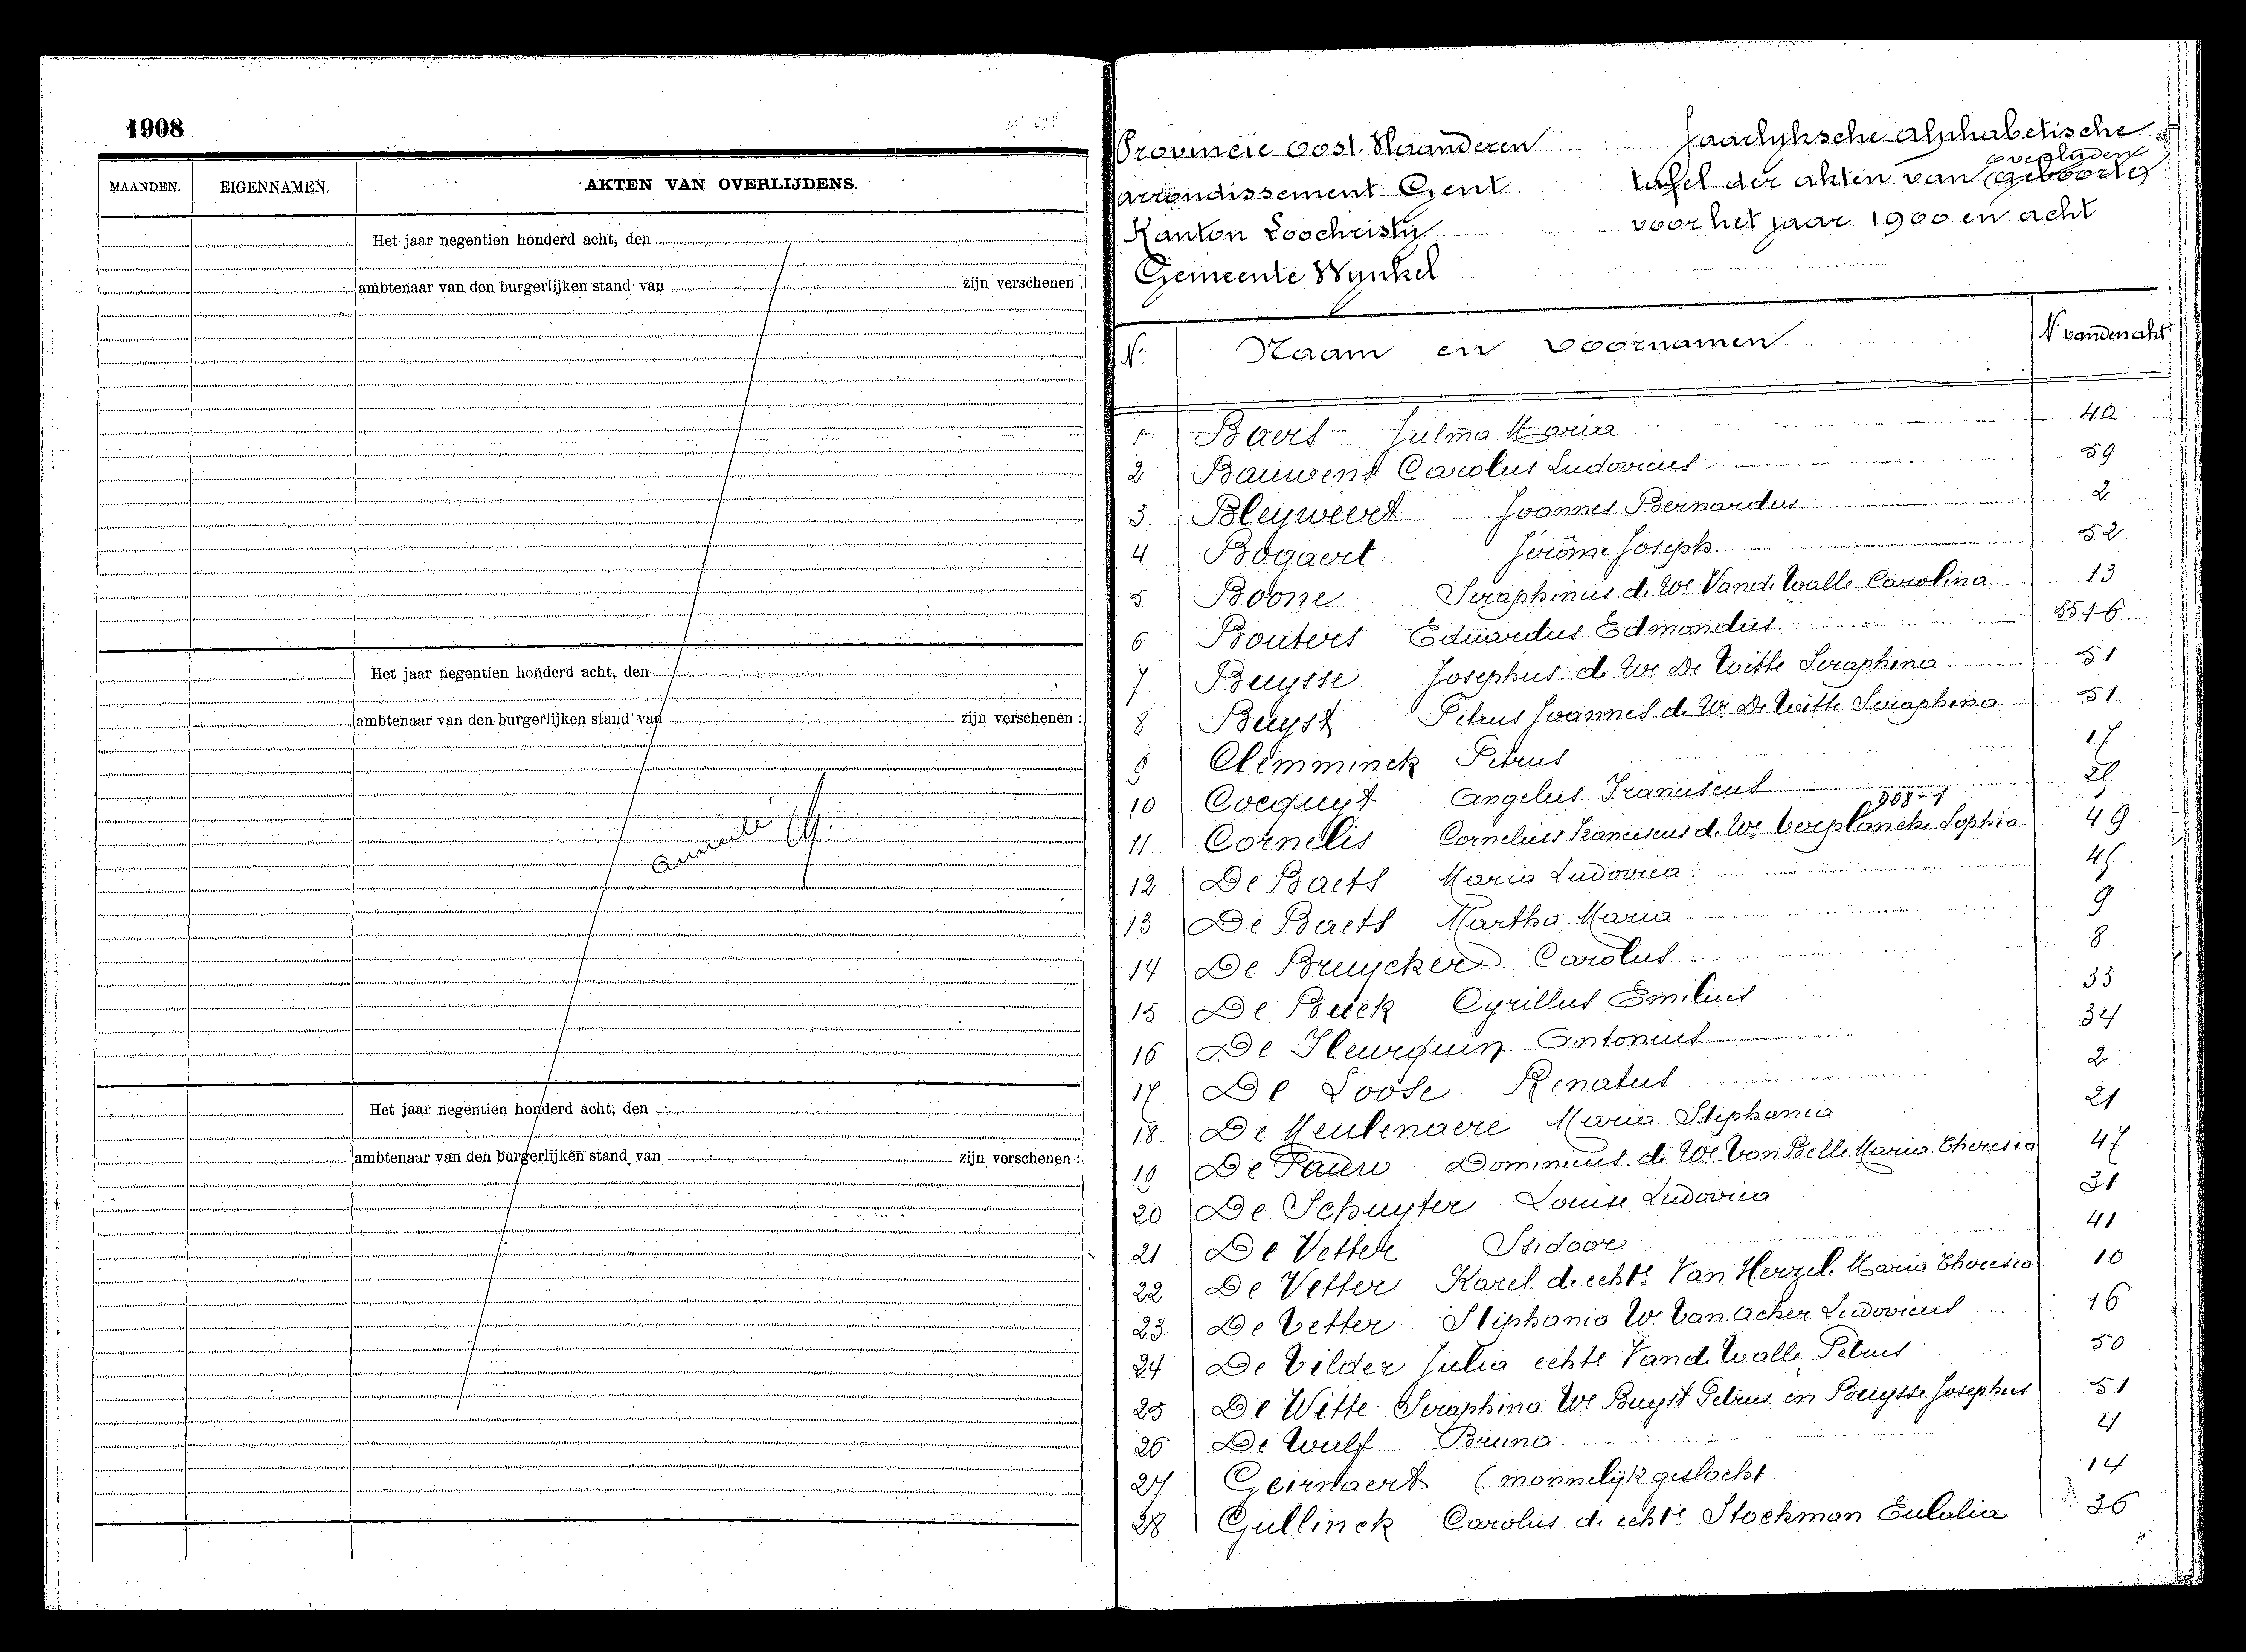 1908
MAANDEN. EIGENNAMEN. AKTEN VAN OVERLIJDENS.
Het jaar negentien honderd acht, den
ambtenaar van den burgerlijken stand van zijn verschenen :
Het jaar negentien honderd acht, den
ambtenaar van den burgerlijken stand van zijn verschenen :
Het jaar negentien honderd acht, den
ambtenaar van den burgerlijken stand van zijn verschenen :
Provincie Oost. Vlaanderen Jaarlyksche alphabetische
overlyden
arrondissement Gent tafel der akten van geboorte
Kanton Loochristy voor het jaar 1900 en acht
Gemeente Wynkel
N. Naam en voornamen N vanden akt
1 Baers Julma Maria 40
2 Bauwens Carolus Ludovicus 59
3 Bleyweert Joannes Bernardus 2
4 Bogaert Jérôme Joseph 52
5 Boone Seraphinus de We Vande Walle Carolina 13
6 Bouters Eduardus Edmondus
7 Buysse Josephus de We De Witte Seraphina 51
8 Buyst Petrus Joannes de We De Witte Seraphina 51
9 Clemminck Petrus 17
10 Coequyt Angelus Franciscus
11 Cornelis Cornelius Franciscus de We Verplancke Sophia 49
12 De Baets Maria Ludovica 45
13 De Baets Martha Maria 9
14 De Bruycker Carolus 8
15 De Buck Cyrillus Emilius 33
16 De Fleurquin Antonius 34
17 De Loose Renatus 2
18 De Meulenaere Maria Stephania 21
19 De Pauw Dominicus de We Van Belle Maria Theresia 47
20 De Schuyter Louise Ludovica 31
21 De Vetter Isidoor 41
22 De Vetter Karel de echte Van Herzel. Maria Theresia 10
23 De Vetter Stephania We Van Acker Ludovicus 16
24 De Vilder Julia echte Vande Walle Petrus 50
25 De Witte Seraphina We Buyst Petrus en Buysse Josephus 51
26 De Wulf Bruno 4
27 Geirnaert (mannelijk geslacht 14
28 Gullinck Carolus de echte Stockman Eulalia 36